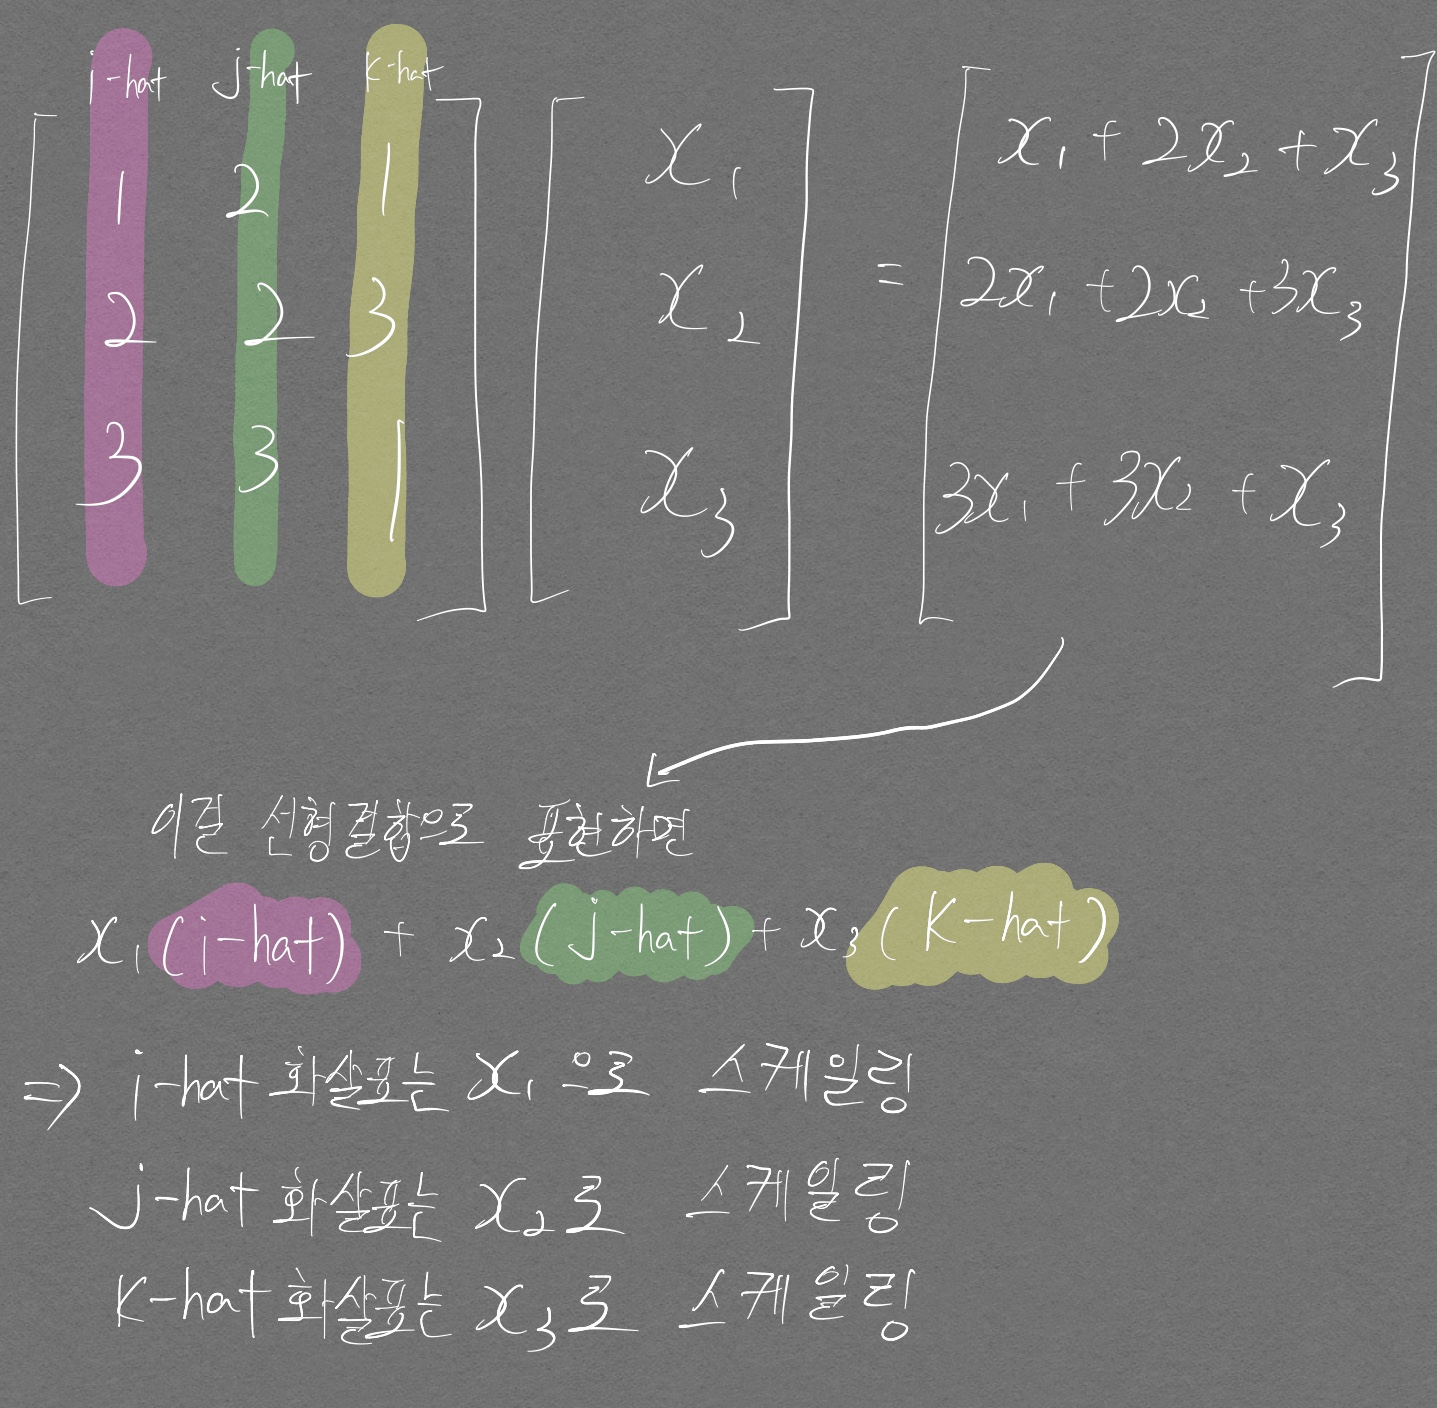 i-hat j-hat k-hat
1 2 1 x₁ x₁ + 2x₂ + x₃
2 2 3 x₂ = 2x₁ + 2x₂ + 3x₃
3 3 1 x₃ 3x₁ + 3x₂ + x₃
이걸 선형결합으로 표현하면
x₁(i-hat) + x₂(j-hat) + x₃(k-hat)
⇒ i-hat 화살표는 x₁으로 스케일링
j-hat 화살표는 x₂로 스케일링
k-hat 화살표는 x₃로 스케일링